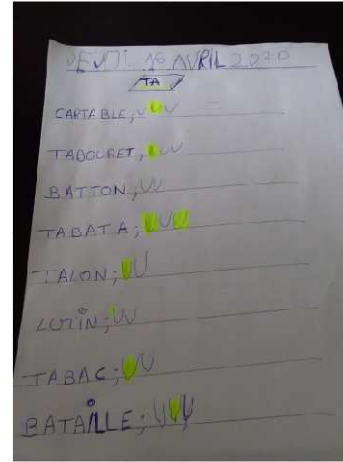 JEUDI 16 AVRIL 2020
TA
CARTABLE;
TABOURET,
BATTON;
TABATA;
TALON;
LUTIN;
TABAC;
BATAILLE;